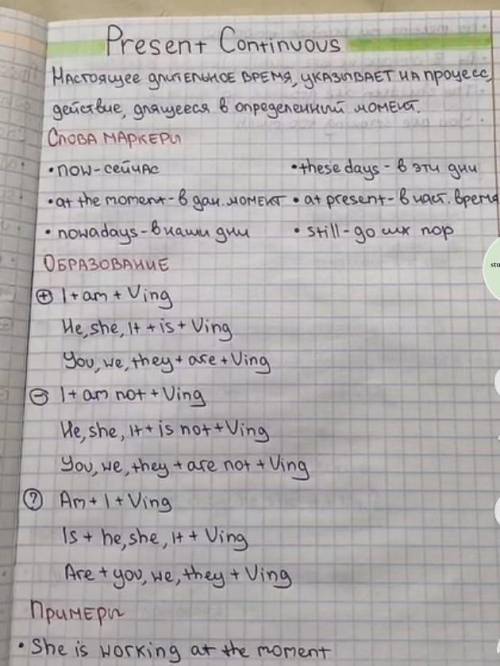 Present Continuous
Настоящее длительное время, указывает на процесс,
действие, длящееся в определенный момент.
Слова маркеры
• now - сейчас • these days - в эти дни
• at the moment - в дан. момент • at present - в наст. время
• nowadays - в наши дни • still - до сих пор
Образование
+ I + am + Ving
He, she, it + is + Ving
You, we, they + are + Ving
- I + am not + Ving
He, she, it + is not + Ving
You, we, they + are not + Ving
? Am + I + Ving
Is + he, she, it + Ving
Are + you, we, they + Ving
Примеры
• She is working at the moment